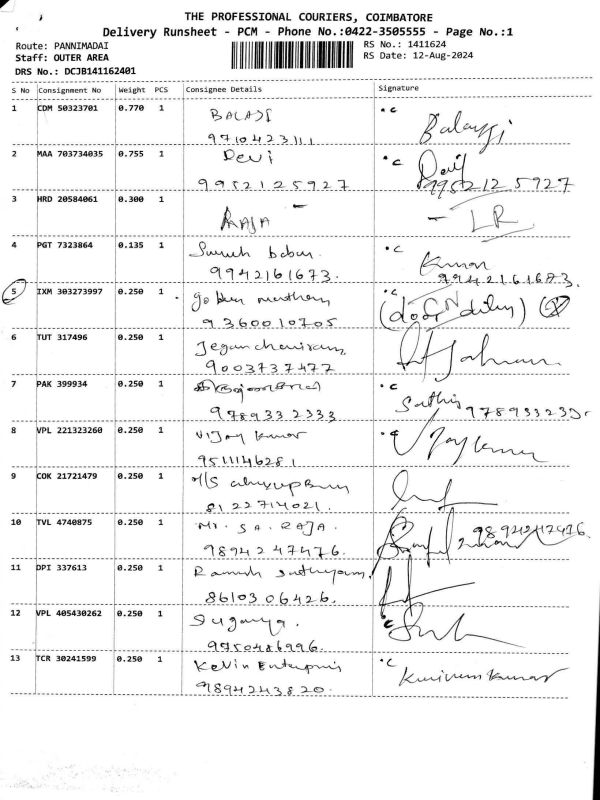 THE PROFESSIONAL COURIERS, COIMBATORE
Delivery Runsheet - PCM - Phone No.:0422-3505555 - Page No.:1
Route: PANNIMADAI
RS No.: 1411624
Staff: OUTER AREA
RS Date: 12-Aug-2024
DRS No.: DCJB141162401
S No Consignment No Weight PCS Consignee Details Signature
1 CDM 50323701 0.770 1 BALAJI
9710423111
2 MAA 703734035 0.755 1 Devi
9952125927 995212 5927
3 HRD 20584061 0.300 1 RAJA - LR
4 PGT 7323864 0.135 1 Suresh babu. Kumar
9942161673. 9942161673.
5 IXM 303273997 0.250 1
9360010705
6 TUT 317496 0.250 1
9003737477
7 PAK 399934 0.250 1
9789332333
8 VPL 221323260 0.250 1 Vijay Kumar Vijaykumar
9511146281
9 COK 21721479 0.250 1 M/S
8122714021.
10 TVL 4740875 0.250 1 Mr. S.A. RAJA. 9894247476.
9894247476.
11 DPI 337613 0.250 1 Ramesh
8610306426.
12 VPL 405430262 0.250 1 Suganya.
9750486996.
13 TCR 30241599 0.250 1 Kelvin Enterprises
9894243820.